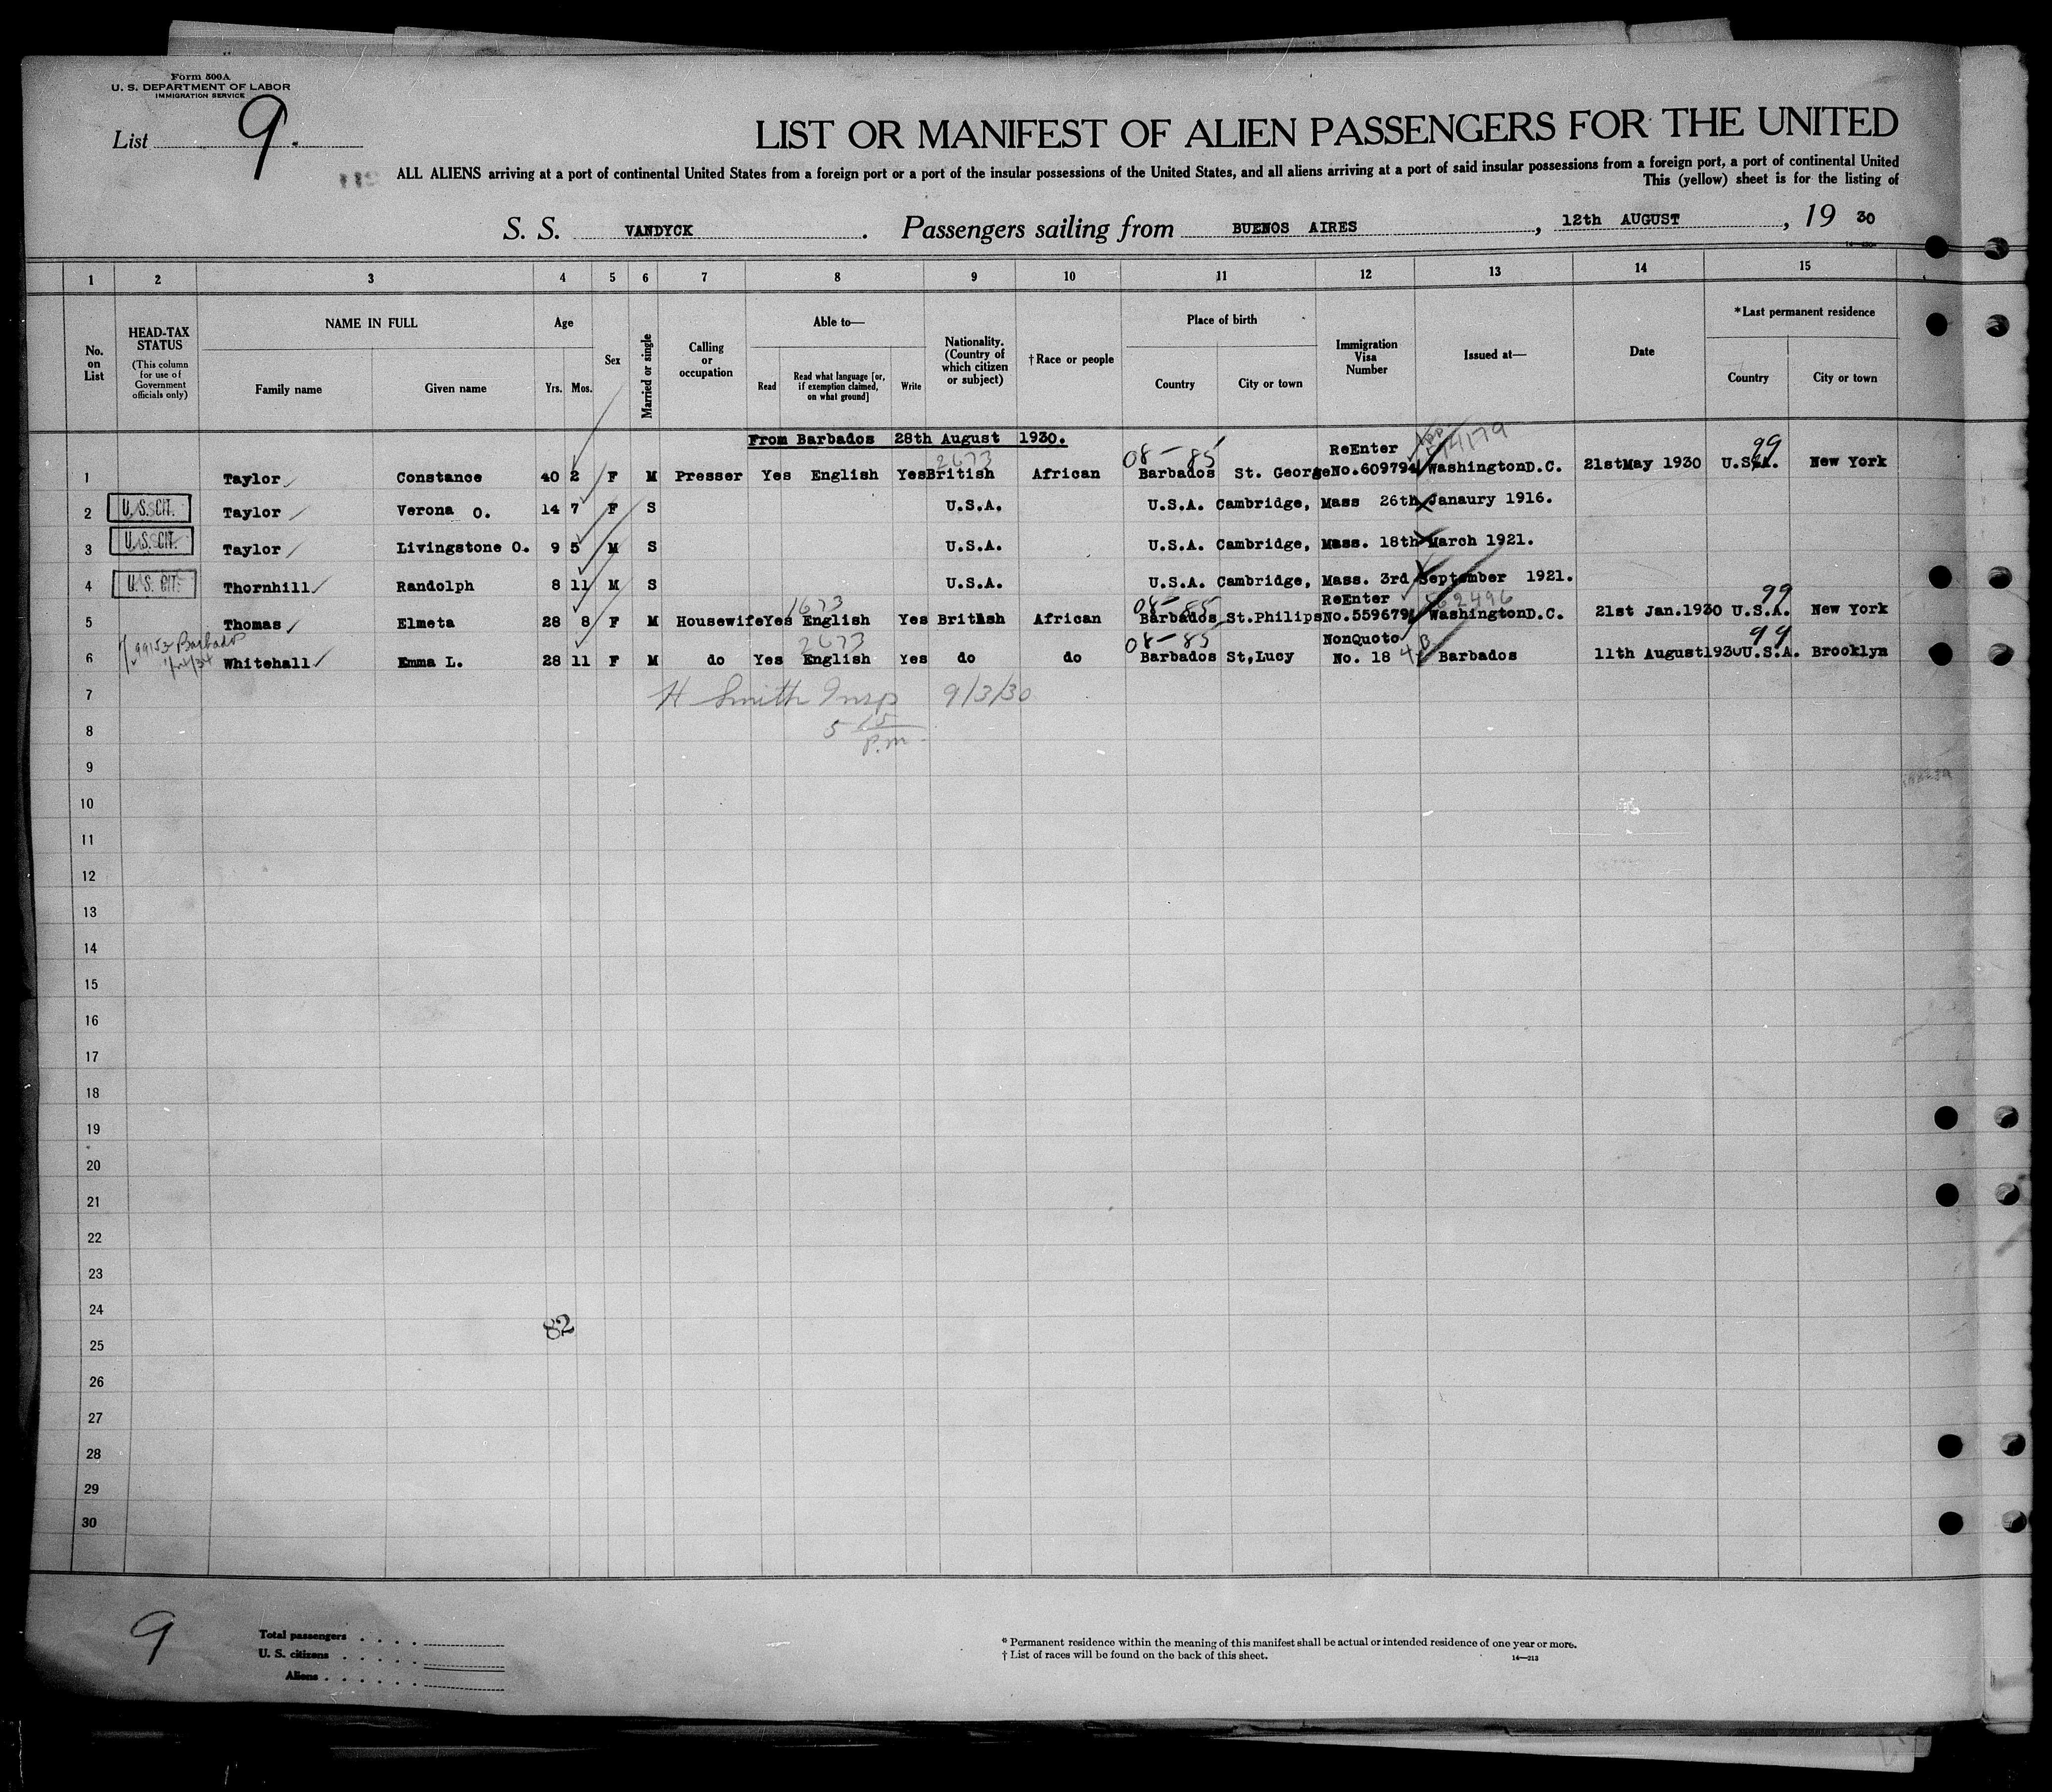 Form 500A
U. S. DEPARTMENT OF LABOR
IMMIGRATION SERVICE
List 9.
LIST OR MANIFEST OF ALIEN PASSENGERS FOR THE UNITED
ALL ALIENS arriving at a port of continental United States from a foreign port or a port of the insular possessions of the United States, and all aliens arriving at a port of said insular possessions from a foreign port, a port of continental United
This (yellow) sheet is for the listing of
S. S. VANDYCK. Passengers sailing from BUENOS AIRES, 12th AUGUST, 19 30
1 2 3 4 5 6 7 8 9 10 11 12 13 14 15
No. on List
HEAD-TAX STATUS
(This column for use of Government officials only)
NAME IN FULL
Family name Given name
Age
Yrs. Mos.
Sex
Married or single
Calling or occupation
Able to—
Read
Read what language [or, if exemption claimed, on what ground]
Write
Nationality. (Country of which citizen or subject)
†Race or people
Place of birth
Country City or town
Immigration Visa Number
Issued at—
Date
*Last permanent residence
Country City or town
From Barbados 28th August 1930.
2673 08-85 ReEnter 99
1 Taylor Constance 40 2 F M Presser Yes English Yes British African Barbados St. George No.609794 Washington D.C. 21stMay 1930 U.S.A. New York
2 U.S. CIT. Taylor Verona O. 14 7 F S U.S.A. U.S.A. Cambridge, Mass 26th Janaury 1916.
3 U.S. CIT. Taylor Livingstone O. 9 5 M S U.S.A. U.S.A. Cambridge, Mass. 18th March 1921.
4 U.S. CIT. Thornhill Randolph 8 11 M S U.S.A. U.S.A. Cambridge, Mass. 3rd September 1921.
1673 08-85 ReEnter 562496 99
5 Thomas Elmeta 28 8 F M Housewife Yes English Yes British African Barbados St.Philips No.559679 Washington D.C. 21st Jan.1930 U.S.A. New York
99153 Barbados 2673 08-85 NonQuoto 99
6 Whitehall Emma L. 28 11 F M do Yes English Yes do do Barbados St,Lucy No. 18 Barbados 11th August1930 U.S.A. Brooklyn
7 H Smith Insp 9/3/30
8 5 15 P.m.
9
10
11
12
13
14
15
16
17
18
19
20
21
22
23
24
82
25
26
27
28
29
30
9
Total passengers
U. S. citizens
Aliens
* Permanent residence within the meaning of this manifest shall be actual or intended residence of one year or more.
† List of races will be found on the back of this sheet.
14—213